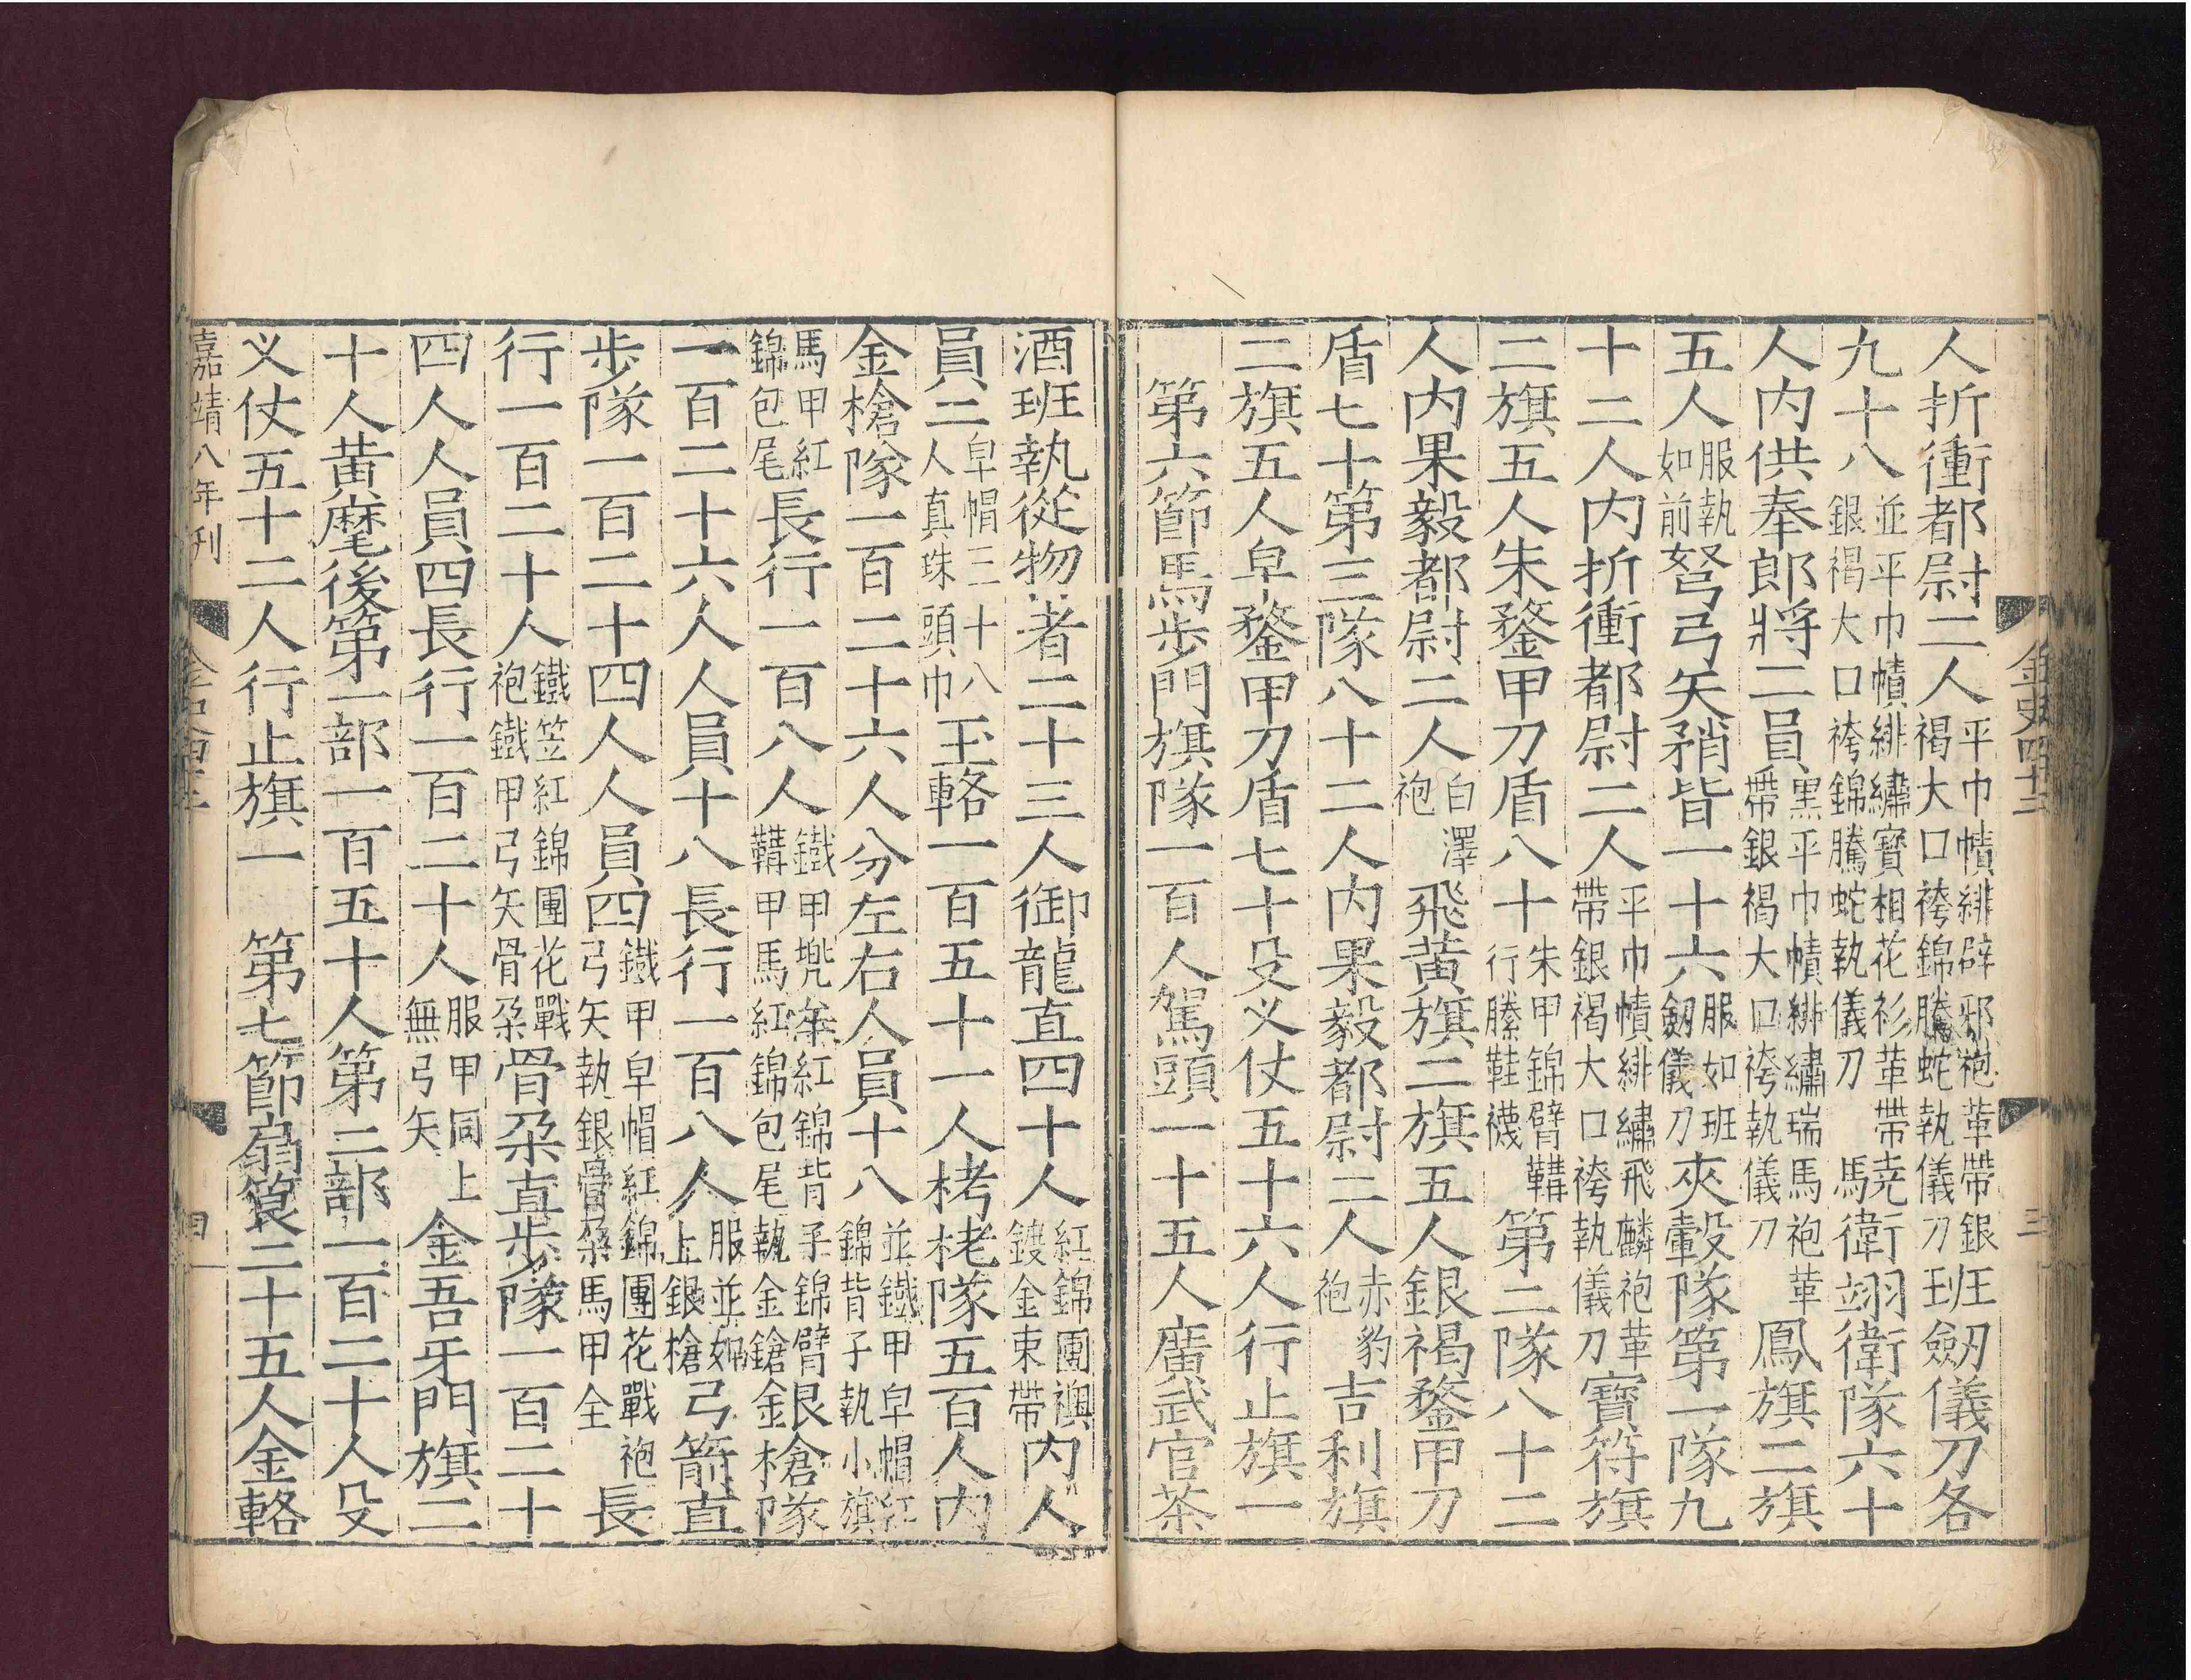 人折衝都尉二人平巾幘緋辟邪袍革帶銀褐大口袴錦騰蛇執儀刀班劒儀刀各
九十八並平巾幘緋繡寶相花衫革帶銀褐大口袴錦騰蛇執儀刀驍衛翊衛隊六十
人内供奉郎將二員黑平巾幘緋繡瑞馬袍革帶銀褐大口袴執儀刀鳳旗二旗
五人服執如前弩弓矢矟皆一十六服如班劒儀刀夾轂隊第一隊九
十二人内折衝都尉二人平巾幘緋繡飛麟袍革帶銀褐大口袴執儀刀寶符旗
二旗五人朱鍪甲刀盾八十朱甲錦臂鞲行縢鞋襪第二隊八十二
人内果毅都尉二人白澤袍飛黄旗二旗五人銀褐鍪甲刀
盾七十第三隊八十二人内果毅都尉二人赤豹袍吉利旗
二旗五人皁鍪甲刀盾七十殳义仗五十六人行止旗一
第六節馬步門旗隊一百人駕頭一十五人廣武官茶
金史四十二
三
酒班執從物者二十三人御龍直四十人紅錦團襖鍍金束帶内人
員二人皁帽三十八人真珠頭巾玉輅一百五十一人栲栳隊五百人内
金槍隊一百二十六人分左右人員十八並鐵甲皁帽紅錦背子執小旗
馬甲紅錦包尾長行一百八人鐵甲兠鍪紅錦背子錦臂鞲甲馬紅錦包尾執金鎗銀槍隊
一百二十六人人員十八長行一百八人服並如上銀槍弓箭直
步隊一百二十四人人員四鐵甲皁帽紅錦團花戰袍弓矢執銀骨朶馬甲全長
行一百二十人鐵笠紅錦團花戰袍鐵甲弓矢骨朶骨朶直步隊一百二十
四人人員四長行一百二十人服甲同上無弓矢金吾牙門旗二
十人黄麾後第一部一百五十人第二部一百二十人殳
义仗五十二人行止旗一　第七節扇筤二十五人金輅
嘉靖八年刋
金史四十二
四